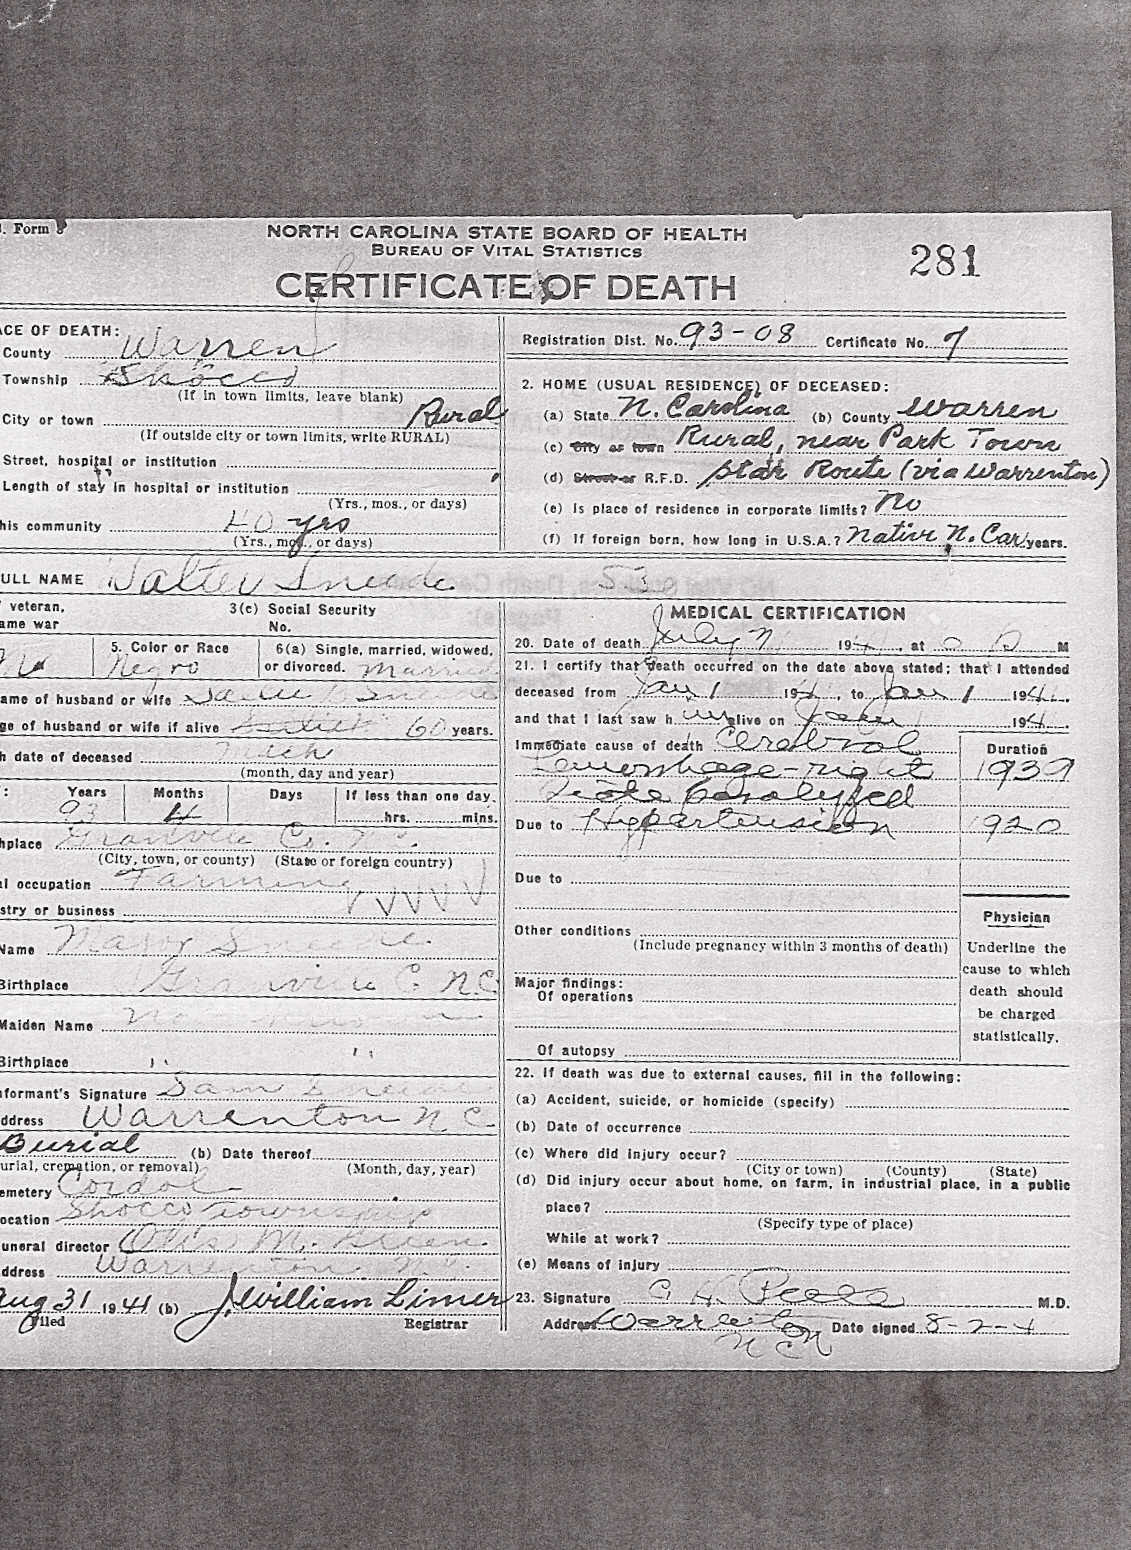 . Form 8
NORTH CAROLINA STATE BOARD OF HEALTH
BUREAU OF VITAL STATISTICS
CERTIFICATE OF DEATH
281
ACE OF DEATH:
County Warren
Township Shocco
(If in town limits, leave blank)
City or town Rural
(If outside city or town limits, write RURAL)
Street, hospital or institution
Length of stay in hospital or institution
(Yrs., mos., or days)
his community 40 yrs
(Yrs., mos., or days)
Registration Dist. No. 93-08 Certificate No. 7
2. HOME (USUAL RESIDENCE) OF DECEASED:
(a) State N. Carolina (b) County Warren
(c) City or town Rural, near Park Town
(d) Street or R.F.D. Star Route (via Warrenton)
(e) Is place of residence in corporate limits? No
(f) If foreign born, how long in U.S.A.? native N. Car years.
ULL NAME Walter Sneede 53
veteran,
ame war
3(c) Social Security
No.
5. Color or Race
Negro
6(a) Single, married, widowed,
or divorced. Married
ame of husband or wife
ge of husband or wife if alive 60 years.
h date of deceased
(month, day and year)
: Years Months Days If less than one day
93 4 hrs. mins.
hplace Granville Co. N.C.
(City, town, or county) (State or foreign country)
l occupation Farming
stry or business
Name Major Sneede
Birthplace Granville C. N.C.
Maiden Name
Birthplace " "
nformant's Signature Sam Sneede
ddress Warrenton N C.
Burial (b) Date thereof
urial, cremation, or removal) (Month, day, year)
emetery
ocation Shocco Township
uneral director Otis M.
ddress Warrenton N.C.
Aug 31 1941 (b) J. William Limer
Filed Registrar
MEDICAL CERTIFICATION
20. Date of death July 194 , at M
21. I certify that death occurred on the date above stated; that I attended
deceased from Jan 1 194 , to Jan 1 1941.
and that I last saw h im alive on 194 .
Immediate cause of death Cerebral
Hemorhage-right
Side paralyzed
Duration
1939
Due to Hypertension 1920
Due to
Other conditions
(Include pregnancy within 3 months of death)
Major findings:
Of operations
Of autopsy
Physician
Underline the
cause to which
death should
be charged
statistically.
22. If death was due to external causes, fill in the following:
(a) Accident, suicide, or homicide (specify)
(b) Date of occurrence
(c) Where did injury occur?
(City or town) (County) (State)
(d) Did injury occur about home, on farm, in industrial place, in a public
place?
(Specify type of place)
While at work?
(e) Means of injury
23. Signature M.D.
Address Warrenton Date signed 8-2-4
N C